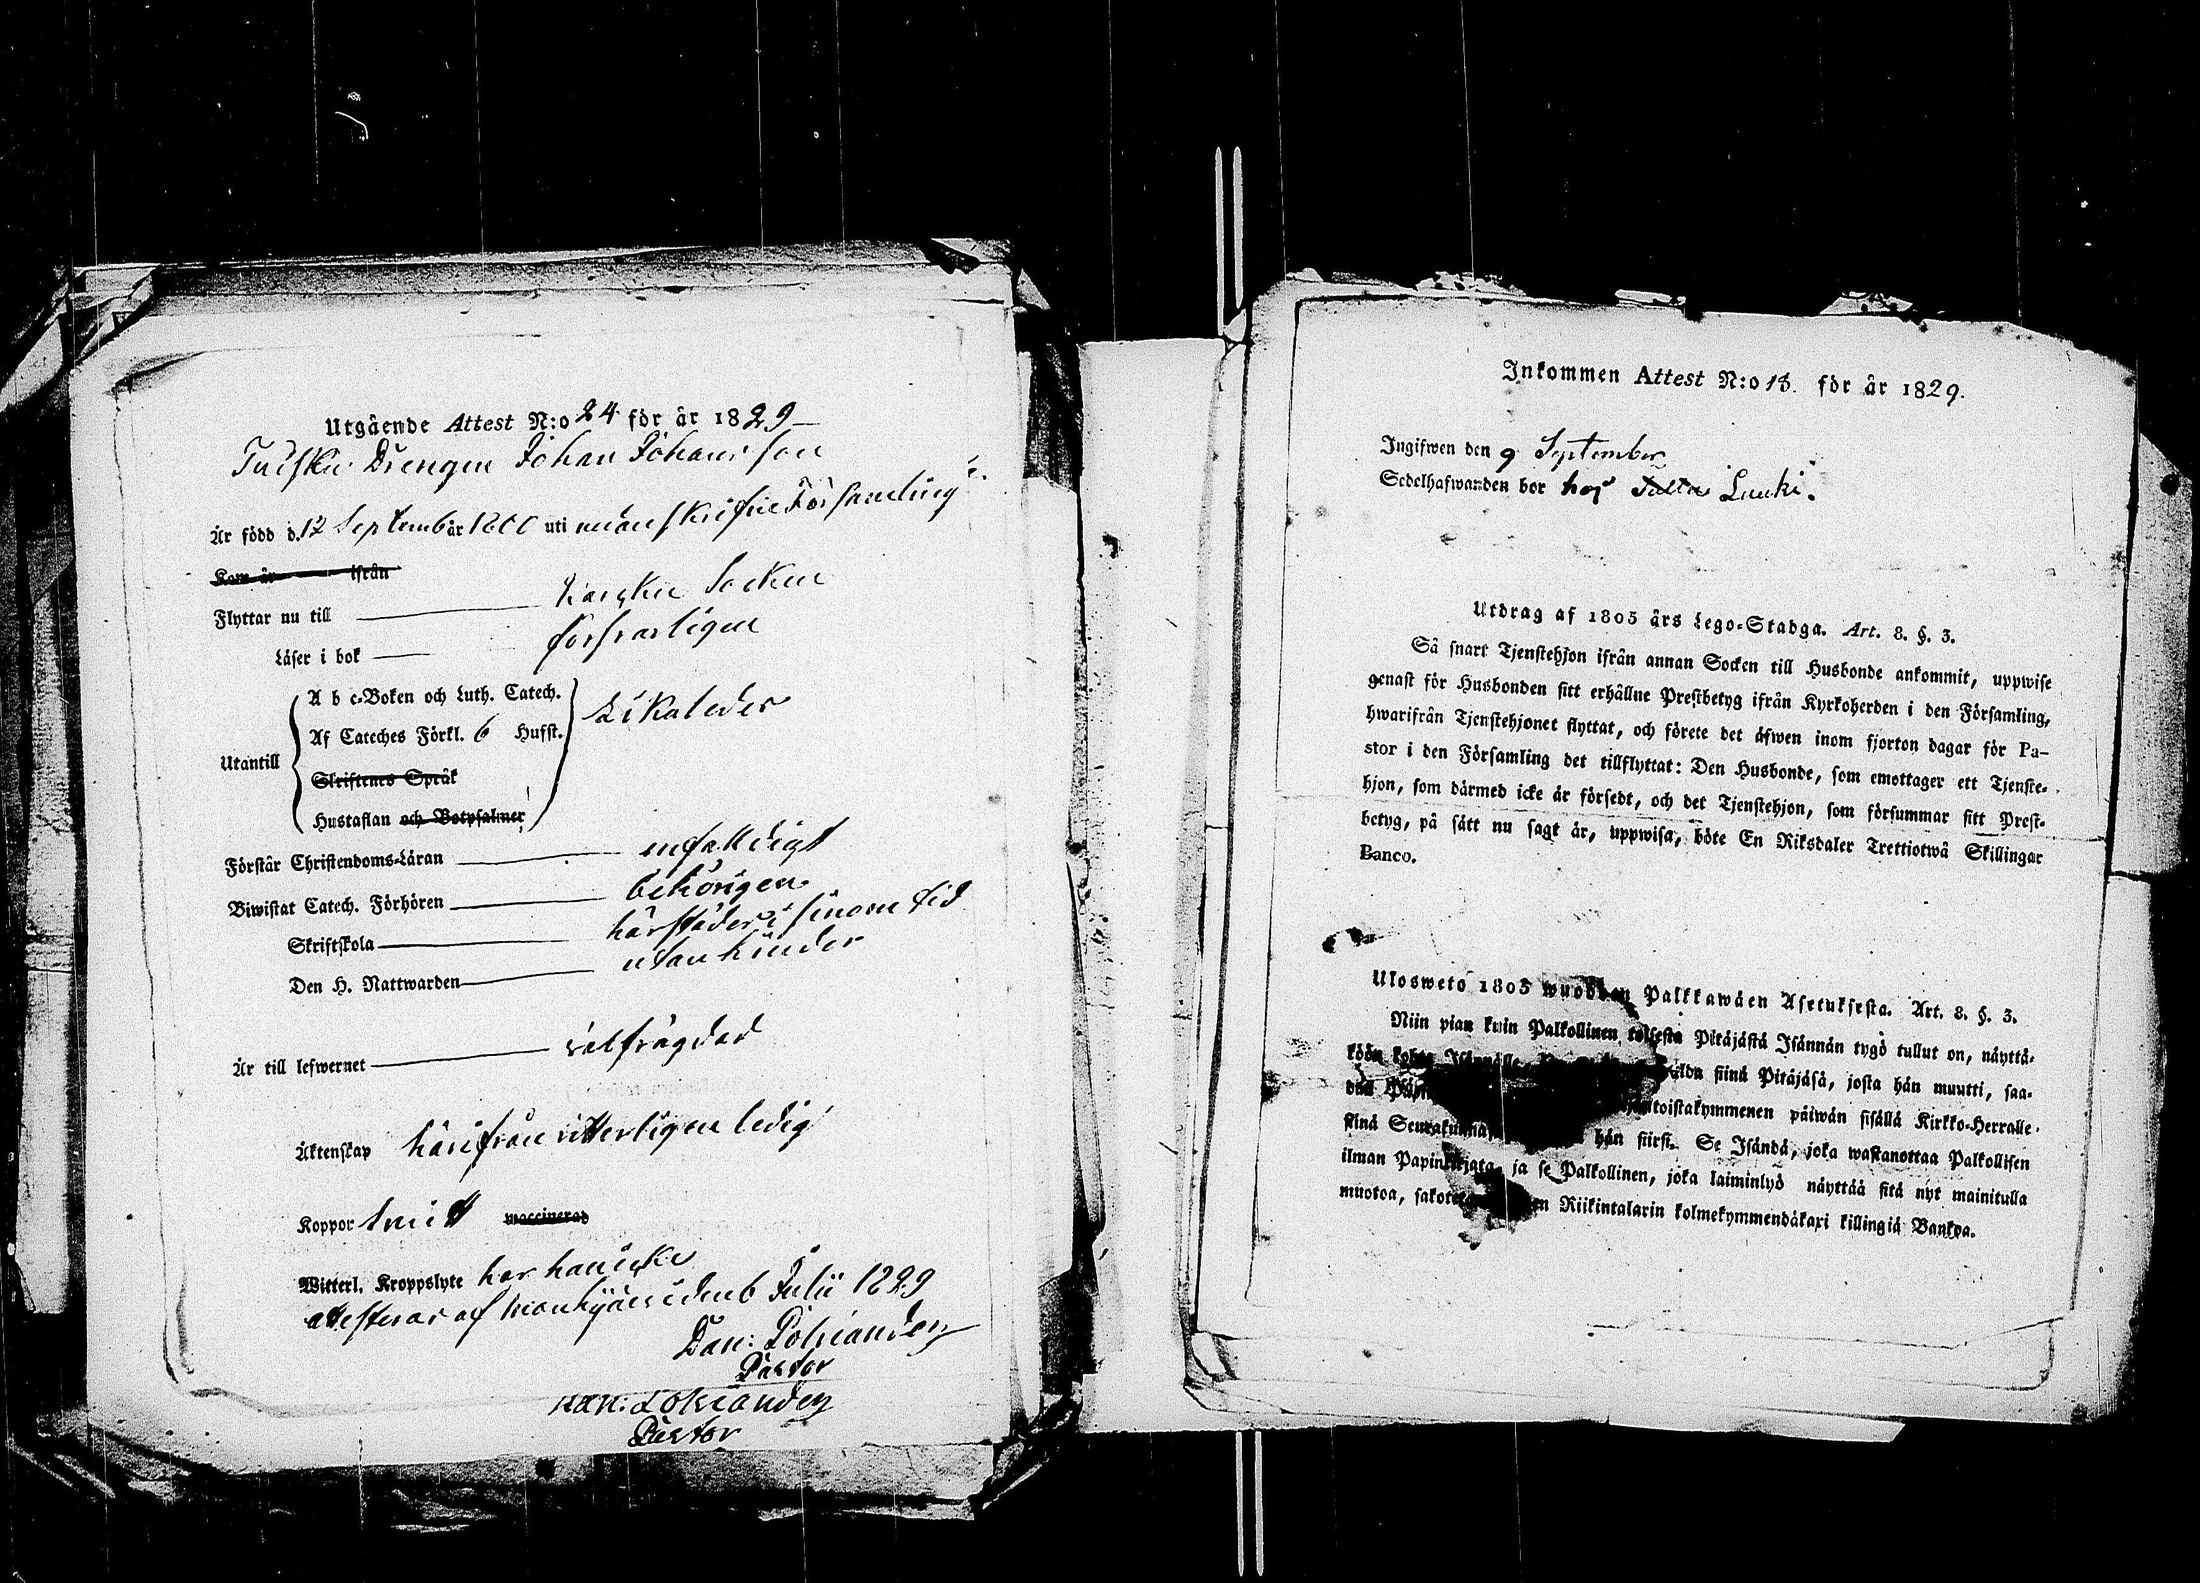 Utgående Attest N:o 24 för år 1829
Drengen Johan Johansson
Är född d. 12 September 1800 uti nedanskrifne Församling
Kom år ifrån
Flyttar nu till Socken
Läser i bok försvarligen
Utantill
A b c-Boken och Luth. Catech.
Af Cateches Förkl. 6 Hufst.
Likaledes
Skriftenes Språk
Hustaflan och Botpsalmer
Förstår Christendoms-Läran enfalldigt
Biwistat Catech. Förhören behörigen
Skriftskola härstädes i sinom tid
Den H. Nattwarden utan hinder
Är till lefwernet välfrägdad
Äktenskap härifrån vitterligen ledig
Koppor haft vaccinerad
Witterl. Kroppslyte har han icke
attesterar af den 6 Julii 1829
Dan:
Pastor
Pastor
Inkommen Attest N:o 13. för år 1829.
Ingifwen den 9 September
Sedelhafwanden bor hos Luuki.
Utdrag af 1805 års Lego-Stadga. Art. 8. §. 3.
Så snart Tjenstehjon ifrån annan Socken till Husbonde ankommit, uppwise
genast för Husbonden sitt erhållne Prestbetyg ifrån Kyrkoherden i den Församling,
hwarifrån Tjenstehjonet flyttat, och förete det äfwen inom fjorton dagar för Pa-
stor i den Församling det tillflyttat: Den Husbonde, som emottager ett Tjenste-
hjon, som därmed icke är försedt, och det Tjenstehjon, som försummar sitt Prest-
betyg, på sätt nu sagt är, uppwisa, böte En Riksdaler Trettiotwå Skillingar
Banco.
Ulosweto 1805 wuoden Palkkawäen Asetuksesta. Art. 8. §. 3.
Niin pian kuin Palkollinen toisesta Pitäjästä Isännän tygö tullut on, näyttä-
köön kohta Isännälle siinä Pitäjäsä, josta hän muutti, saa-
dun toistakymmenen päiwän sisällä Kirkko-Herralle
siinä Seurakunnasa hän siirsi. Se Isändä, joka wastanottaa Palkollisen
ilman Papinkirjata, ja se Palkollinen, joka laiminlyö näyttää sitä nyt mainitulla
muotoa, sakotetaan Riikintalarin kolmekymmendäkaxi killingiä Bankoa.